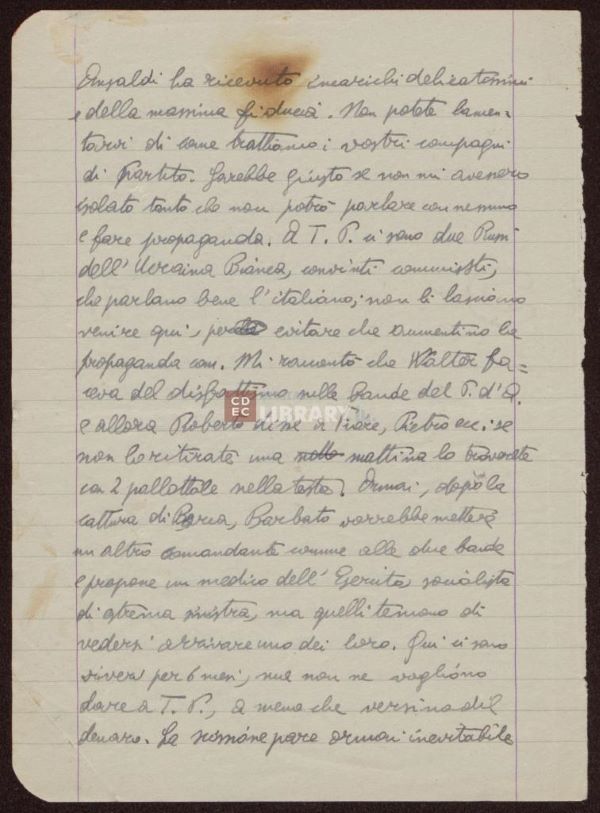 Ansaldi ha ricevuto incarichi delicatissimi
e della massima fiducia. Non potete lamen-
tarvi di come trattiamo i vostri compagni
di Partito. Sarebbe giusto se non mi avessero
isolato tanto che non potrò parlare con nessuno
e fare propaganda. A T. P. ci sono due Russi
dell'Ucraina Bianca, convinti comunisti,
che parlano bene l'italiano; non li lasciano
venire qui, per evitare che aumentino la
propaganda com. Mi raccontò che Walter fa=
ceva del disfattismo nelle bande del P. d'A.
e allora Roberto disse a Fiore, Pietro ecc: se
non lo ritirate una mattina lo troverete
con 2 pallottole nella testa. Ormai, dopo la
cattura di Barbato vorrebbe mettere
un altro comandante comune alle due bande
e propone un medico dell'Esercito, socialista
di estrema sinistra, ma quelli temono di
vedersi arrivare uno dei loro. Qui ci sono
viveri per 6 mesi, ma non ne vogliono
dare a T. P., a meno che versino del
denaro. La scissione pare ormai inevitabile
CDEC LIBRARY